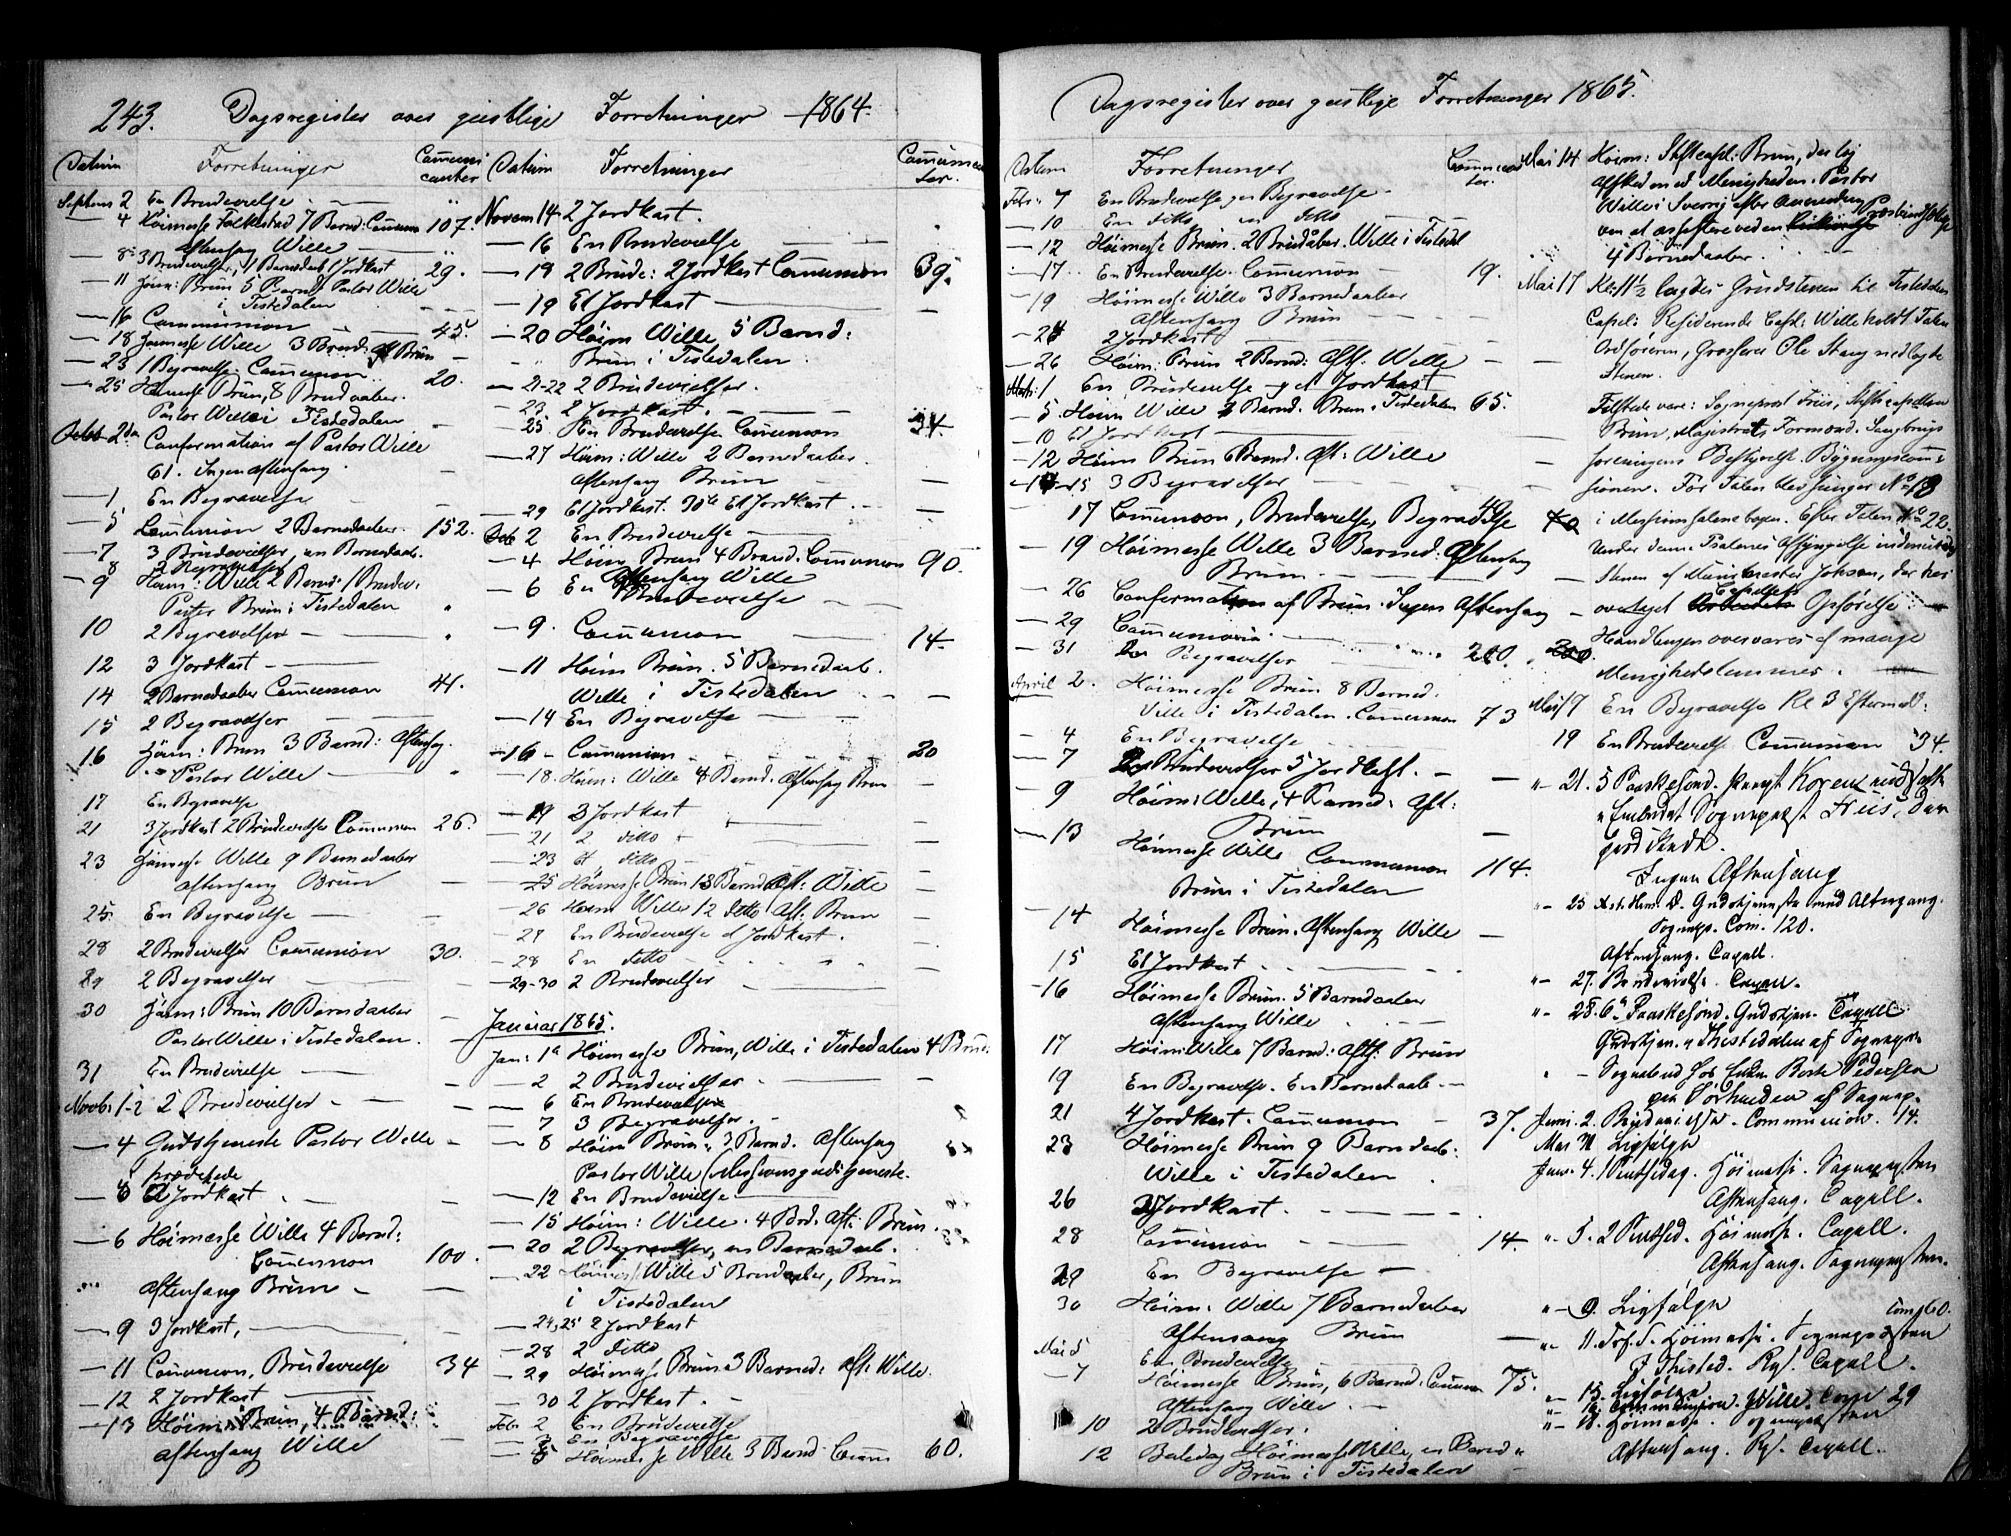 243. Dagsregister over geistlige Forretninger 1864.
Datum Forretninger Communicanter
Septemb 2 En Brudevielse
4 Høimesse Folkestad 7 Barnd: Commun 107.
Aftensang Wille
8. 3 Brudevielser, 1 Barnedaab 1 Jordkast 29.
11 Høim: Brun 5 Barnd Pastor Wille
i Tistedalen
16 Communion 45.
18 Høimesse Wille 3 Barnd: Aft Brun
23 1 Begravelse. Communion 20.
25 Høimesse Brun, 8 Barnedaaber.
Pastor Wille i Tistedalen
Octob 2den Confirmation af Pastor Wille
61. Ingen aftensang.
1. En Begravelse
5 Communion 2 Barnedaaber. 152.
7 3 Brudevielser, en Barnedaab.
8 2 Begravelser
9 Høim: Wille 2 Barnd: 1 Brudev:
Pastor Brun i Tistedalen
10 2 Begravelser
12 3 Jordkast
14 2 Barnedaaber Communion 41.
15 2 Begravelser
16 Høim: Brun 3 Barnd: Aftensag.
Pastor Wille
17 En Begravelse
21 3 Jordkast 2 Brudevielser Communion 26.
23 Høimesse Wille 9 Barnedaaber
aftensang Brun
25. En Begravelse
28 2 Brudevielser Communion 30.
29 2 Begravelser
30 Høim: Brun 10 Barnedaaber
Pastor Wille i Tistedalen.
31 En Brudevielse
Novbr 1-2 2 Brudevielser
4 Gudstjeneste Pastor Wille
prædekede
6 Et Jordkast
6 Høimesse Wille 4 Barnd:
Communion 100.
Aftensang Brun
9 3 Jordkast,
11 Communion, Brudevielse 34
12 2 Jordkast
13 Høim: Brun, 4 Barnd:
aftensang Wille
Datum Forretninger Communicanter.
Novem 14. 2 Jordkast.
16 En Brudevielse
18 2 Brude: 2 Jordkast Communion 39.
19 Et Jordkast
20 Høim Wille 5 Barnd:
Brun i Tistedalen
21-22 2 Brudevielser.
23 2 Jordkast.
25 En Brudevielse Communion 34.
27 Høim: Wille 2 Barnedaaber
Aftensang Brun
29 Et Jordkast. 30te Et Jordkast.
Deb 2 En Brudevielse
4 Høim Brun 4 Brand. Communion 90.
Aftensang Wille
6 En Brudevielse
9. Communion 14.
11 Høim Brun. 5 Barnedaab.
Wille i Tistedalen
14 En Begravelse
16 Communion 20
18. Høim: Wille 4 Barnd. Aftensag Brun
19 3 Jordkast
21 2 ditto
23 et ditto
25 Høimesse Brun 13 Barnd Aft: Wille
26 Høim Wille 12 ditto Aft: Brun
27 En Brudevielse et Jordkast.
28 En ditto
29-30 2 Brudevielser
Januar 1865.
Jan: 1ste Høimesse Brun, Wille i Tistedalen 4 Brud:
2 2 Brudevielser
6 En Brudevielse
7 3 Begravelser.
8 Høim Brun 3 Barnd. Aftensag
Pastor Wille (Missionsgudstjeneste.
12 En Brudevielse
15 Høim: Wille. 4 Brd. Aft: Brun.
20 2 Begravelser, en Barnedaab.
22 Høimesse Wille 5 Barndaaber, Brun
i Tistedalen
24, 25 2 Jordkast
28 2 ditto
29 Høimesse Brun 3 Barned: Aft: Wille.
30 2 Jordkast.
Febr. 2 En Brudevielse
En Begravelse
5 Høimesse Wille 3 Barnd Comm 60.
Dagsregister over geistlige Forretninger 1865.
Datum Forretninger Communicanter.
Febr: 7 En Brudevielse, en Begravelse
10 En ditto en ditto
12 Høimesse Brun. 2 Brudåber. Wille i Tistedal
17 En Brudevielse. Communion 19.
19 Høimesse Wille 3 Barnedaaber
Aftensang Brun
24 2 Jordkast
26 Høim: Brun 2 Barnd: Aft: Wille
Marts: 1 En Brudevielse et Jordkast
5. Høim Wille 2 Barnd. Brun i Tistedalen 65.
10 Et Jordkast
12 Høim Brun 6 Barnd. Aft: Wille
14-15 3 Begravelser
17 Communion, Brudevielse, Begravelse 40
19 Høimesse Wille 3 Barned: Aftensang
Brun.
26 Confermation af Brun. Ingen Aftensang
29 Communion. 200.
31 En Begravelser
April 2. Høimesse Brun 8 Barned.
Wille i Tistedalen. Communion 73
4 En Begravelse
7 En Brudevielser 5 Jordkast.
9 Høim: Wille, 4 Barned: Aft:
Brun
13 Høimesse Wille Communion 114.
Brun i Tistedalen
14 Høimesse Brun. Aftensang Wille
15 Et Jordkast
16 Høimesse Brun. 5 Barndaaber
Aftensang Wille
17 Høim: Wille 7 Barnd: Aft: Brun
19 En Begravelse. En Barnedaab
21 4 Jordkast. Communion 37.
23 Høimesse Brun 9 Barnedaab:
Wille i Tistedalen
26 3 Jordkast.
28 Communion 14.
29 En Begravelse
30 Høim: Wille 7 Barnedaaber
Aftensang Brun
Mai 5 En Brudevielse
7 Høimesse Brun, 6 Barnd. Commun 75.
Aftensang Wille
10 2 Brudevielser.
12 Bededag Høimesse Wille, en Barnd
Brun i Tistedalen
Mai 14 Høim: Stiftcapl: Brun, der tog
Afsked med Menigheden. Pastor
Wille i Sverrig efter Anmodning
om at assistere ved en Præsteindsættelse
4 Barnedaaber.
Mai 17 Kl: 11½ lagdes Grundstenen til Tistedalens
Capel: Residerende Capl: Wille holdt Talen
Ordføreren, Grosserer Ole Stang nedlagde
Stenen.
Tilstede vare: Sogneprest Friis, Stiftscapellan
Brun, Magistrat Formænd. Sangforenings
foreningens Bestyrelse. Bygningscommis-
sionen. Før Talen blev sjunget No 18
i Missionssalmebogen. Efter Talen No 22.
Under denne Psalmes Afsyngelse
Stenen af Murmester Johsen, der har
overtaget Capellets Opførelse.
Handlingen overvares af mange
Menighedslemmer.
Mai 17 En Begravelse Kl 3 Eftermid:
19 En Brudevielse Communion 34.
21. 5 Paaskesønd. Provst Koren indsatte
i Embedet Sogneprest Friis, der
Ingen Aftensang
25 Chr. Him. D. Gudstjeneste med Altergang.
Sognepr. Com. 120.
Aftensang. Capell.
27. Brudevielse. Capell.
28. 6te Paaskesønd. Gudstjen. Capell
Gudstjen. i Thistedalen af Sognepr.
Juni. 2. Brudevielser. Communion. 14.
Mai 31 Ligfølge
Juni. 4. 1 Pintsedag. Høimesse. Sognepresten
Aftensang. Capell.
5. 2 Pintsed. Høimesse. Capell.
Aftensang. Sognepresten.
9. Ligfølge
11. Tref. S. Høimesse. Sognepresten Com. 60.
I Thisted. Rs. Capell.
15. Ligfølge
16. Communion. Wille. Com 29
18. Høimesse. Sognepresten
Aftensang. Rs. Capell.